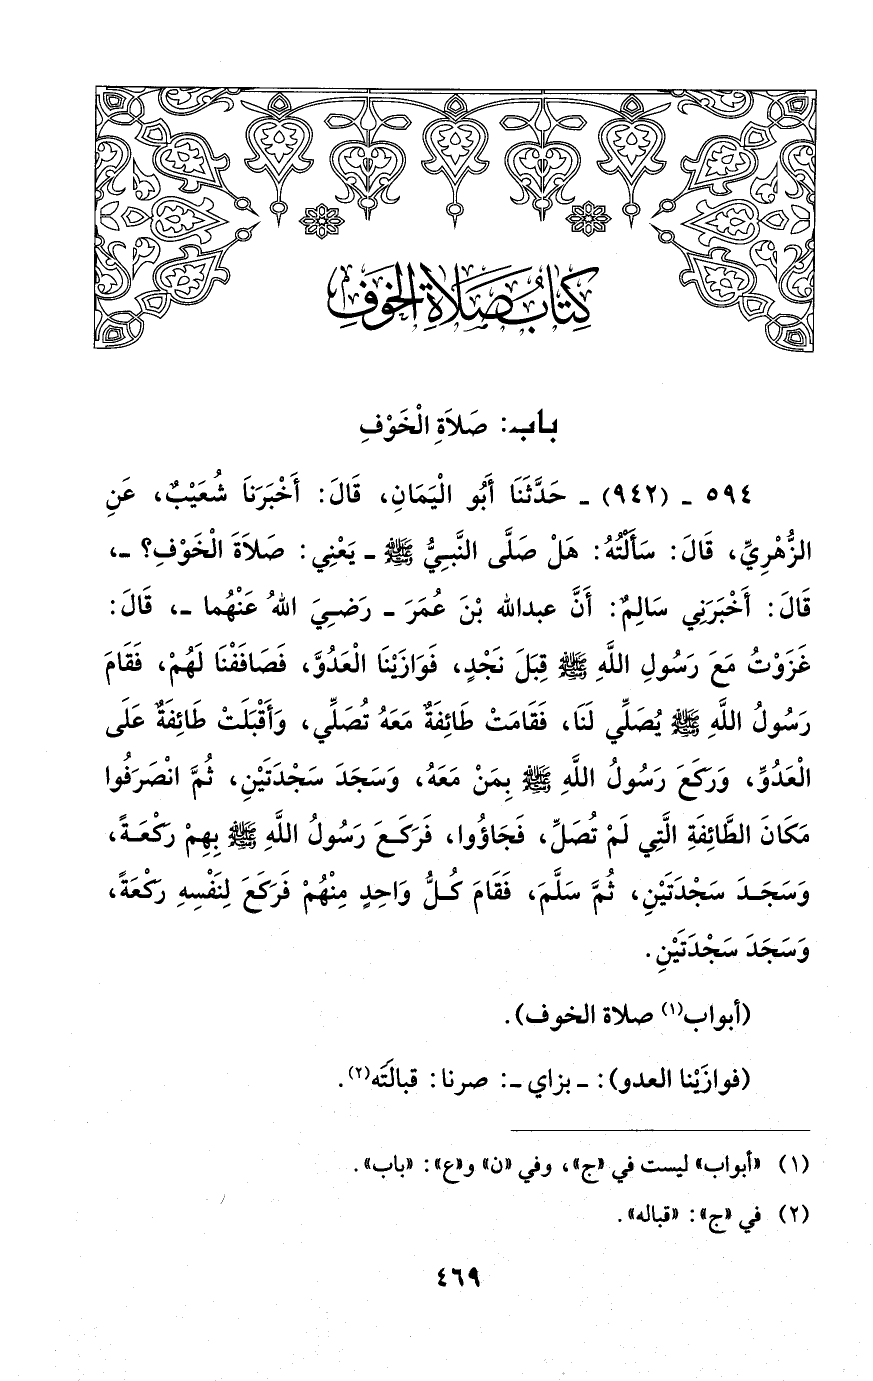 كِتَابُ صَلَاةِ الخَوْفِ
باب: صَلاَةِ الْخَوْفِ
٥٩٤ ـ (٩٤٢) ـ حَدَّثَنَا أَبُو الْيَمَانِ، قَالَ: أَخْبَرَنَا شُعَيْبٌ، عَنِ
الزُّهْرِيِّ، قَالَ: سَأَلْتُهُ: هَلْ صَلَّى النَّبِيُّ ﷺ ـ يَعْنِي: صَلاَةَ الْخَوْفِ؟ ـ،
قَالَ: أَخْبَرَنِي سَالِمٌ: أَنَّ عبدالله بْنَ عُمَرَ ـ رَضِيَ اللهُ عَنْهُما ـ، قَالَ:
غَزَوْتُ مَعَ رَسُولِ اللَّهِ ﷺ قِبَلَ نَجْدٍ، فَوَازَيْنَا الْعَدُوَّ، فَصَافَفْنَا لَهُمْ، فَقَامَ
رَسُولُ اللَّهِ ﷺ يُصَلِّي لَنَا، فَقَامَتْ طَائِفَةٌ مَعَهُ تُصَلِّي، وَأَقْبَلَتْ طَائِفَةٌ عَلَى
الْعَدُوِّ، وَرَكَعَ رَسُولُ اللَّهِ ﷺ بِمَنْ مَعَهُ، وَسَجَدَ سَجْدَتَيْنِ، ثُمَّ انْصَرَفُوا
مَكَانَ الطَّائِفَةِ الَّتِي لَمْ تُصَلِّ، فَجَاؤُوا، فَرَكَعَ رَسُولُ اللَّهِ ﷺ بِهِمْ رَكْعَةً،
وَسَجَدَ سَجْدَتَيْنِ، ثُمَّ سَلَّمَ، فَقَامَ كُلُّ وَاحِدٍ مِنْهُمْ فَرَكَعَ لِنَفْسِهِ رَكْعَةً،
وَسَجَدَ سَجْدَتَيْنِ.
(أبواب(١) صلاة الخوف).
(فوازَيْنا العدو): ـ بزاي ـ: صرنا: قبالَتَه(٢).
(١) «أبواب» ليست في «ج»، وفي «ن» و«ع»: «باب».
(٢) في «ج»: «قباله».
٤٦٩